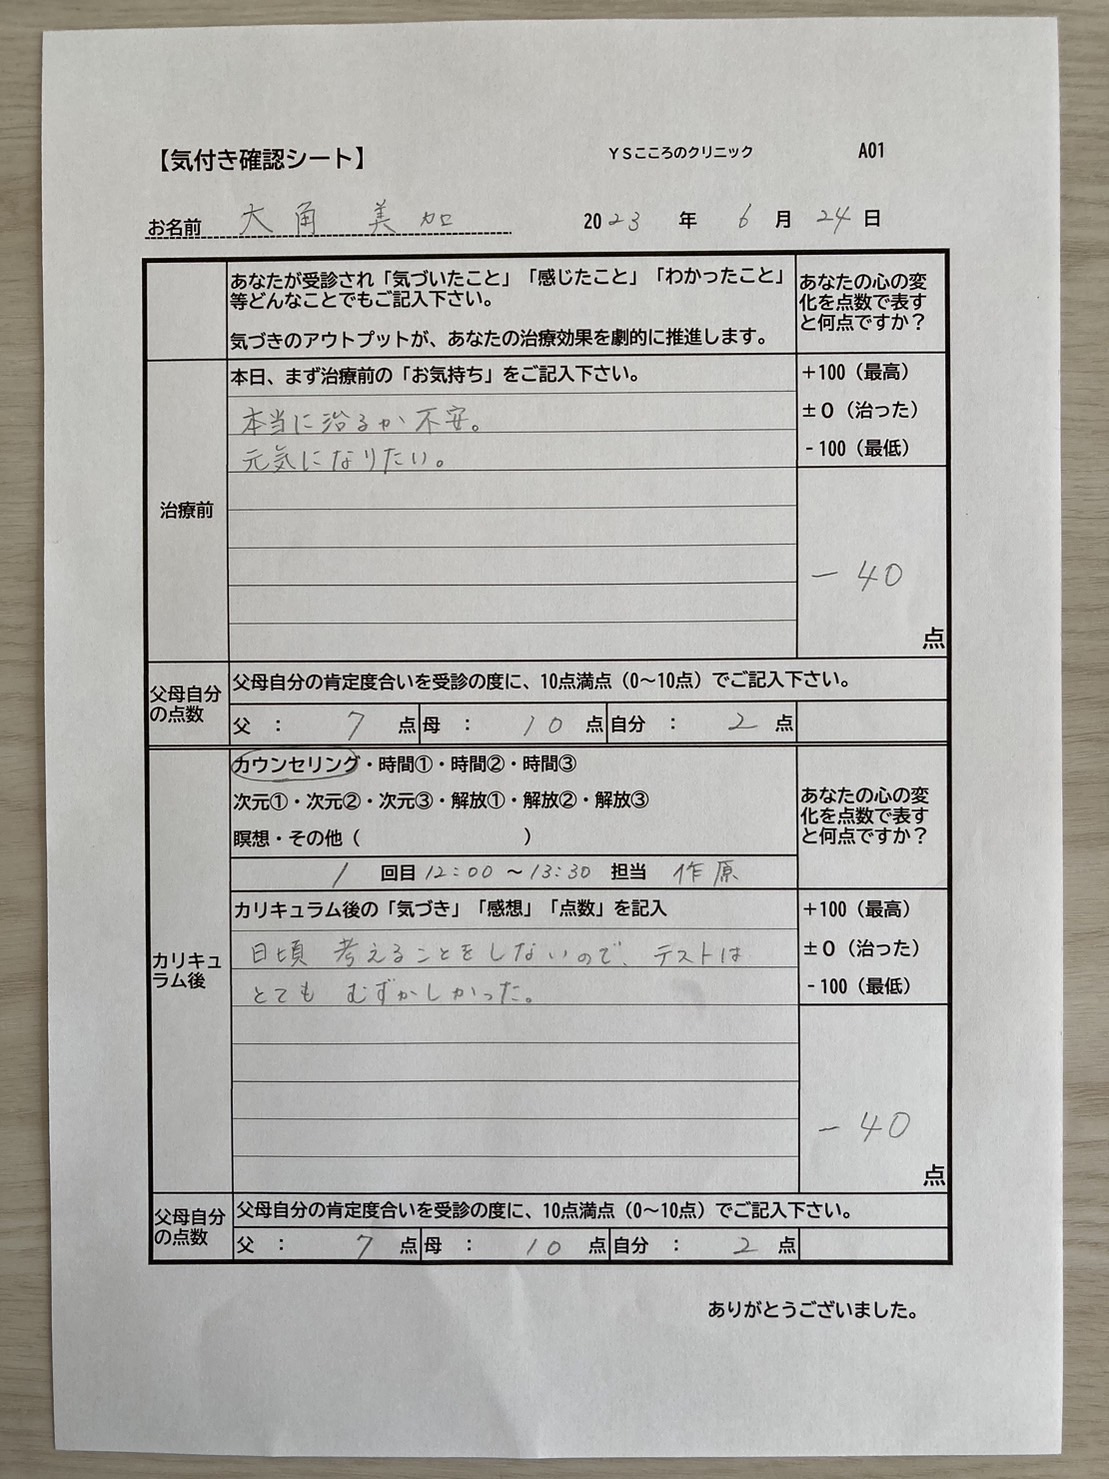 【気付き確認シート】 YSこころのクリニック A01
お名前 大角 美加 2023 年 6 月 24 日
あなたが受診され「気づいたこと」「感じたこと」「わかったこと」
等どんなことでもご記入下さい。
気づきのアウトプットが、あなたの治療効果を劇的に推進します。
あなたの心の変
化を点数で表す
と何点ですか？
治療前
本日、まず治療前の「お気持ち」をご記入下さい。
本当に治るか不安。
元気になりたい。
+100（最高）
±0（治った）
-100（最低）
-40
点
父母自分
の点数
父母自分の肯定度合いを受診の度に、10点満点（0〜10点）でご記入下さい。
父 ： 7 点 母 ： 10 点 自分 ： 2 点
カウンセリング・時間①・時間②・時間③
次元①・次元②・次元③・解放①・解放②・解放③
瞑想・その他（ ）
1 回目 12:00 〜13:30 担当 作原
あなたの心の変
化を点数で表す
と何点ですか？
カリキュ
ラム後
カリキュラム後の「気づき」「感想」「点数」を記入
日頃 考えることをしないので、テストは
とても むずかしかった。
+100（最高）
±0（治った）
-100（最低）
-40
点
父母自分
の点数
父母自分の肯定度合いを受診の度に、10点満点（0〜10点）でご記入下さい。
父 ： 7 点 母 ： 10 点 自分 ： 2 点
ありがとうございました。